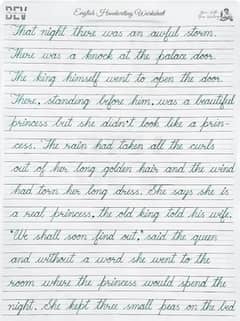 DEV English Handwriting Worksheet
That night there was an awful storm.
There was a knock at the palace door.
The king himself went to open the door.
There, standing before him, was a beautiful
princess but she didn't look like a prin-
cess. The rain had taken all the curls
out of her long golden hair and the wind
had torn her long dress. She says she is
a real princess, the old king told his wife.
"We shall soon find out," said the queen
and without a word she went to the
room where the princess would spend the
night. She kept three small peas on the bed